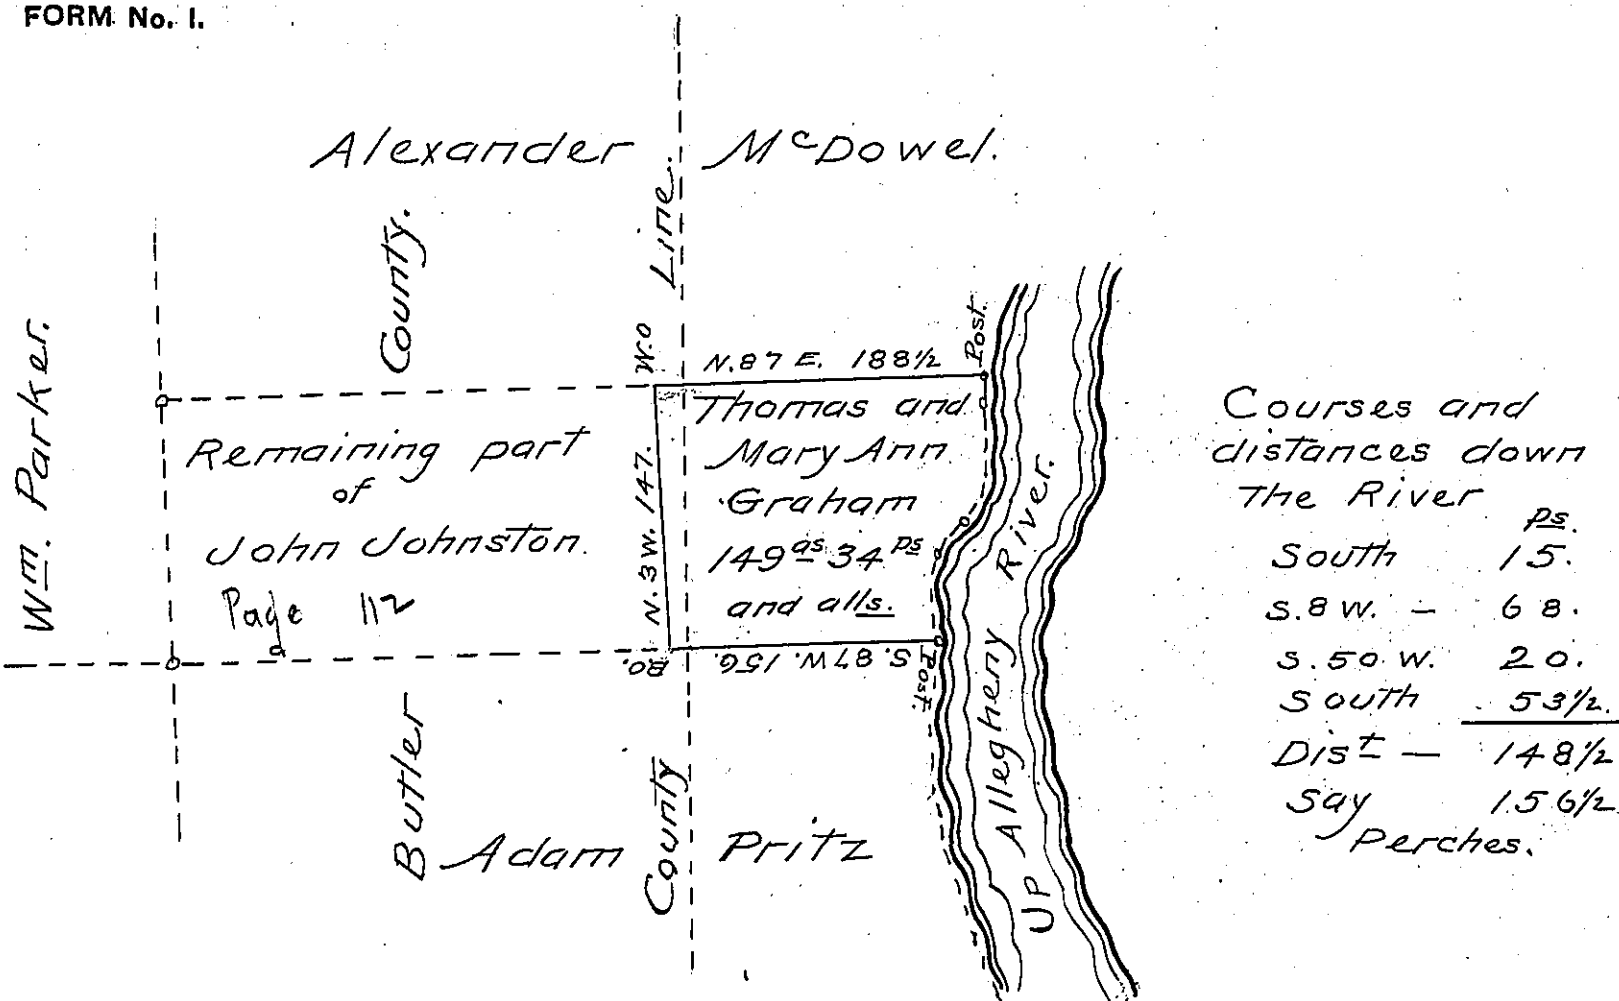 FORM No. 1.
Alexander McDowel.
County.
Line.
Wm. Parker.
W.O
N. 87 E. 188½
Post.
Remaining part
of
John Johnston.
Page 112
N. 3 W. 147.
Thomas and
Mary Ann
Graham
149 as 34 ps
and alls.
BO.
S. 87 W. 156.
Post.
Butler
Adam Pritz
County
UP Allegheny River.
Courses and
distances down
The River
ps.
South 15.
S. 8 W. - 68.
S. 50 W. 20.
South 53½.
Dist — 148½
Say 156½
Perches.